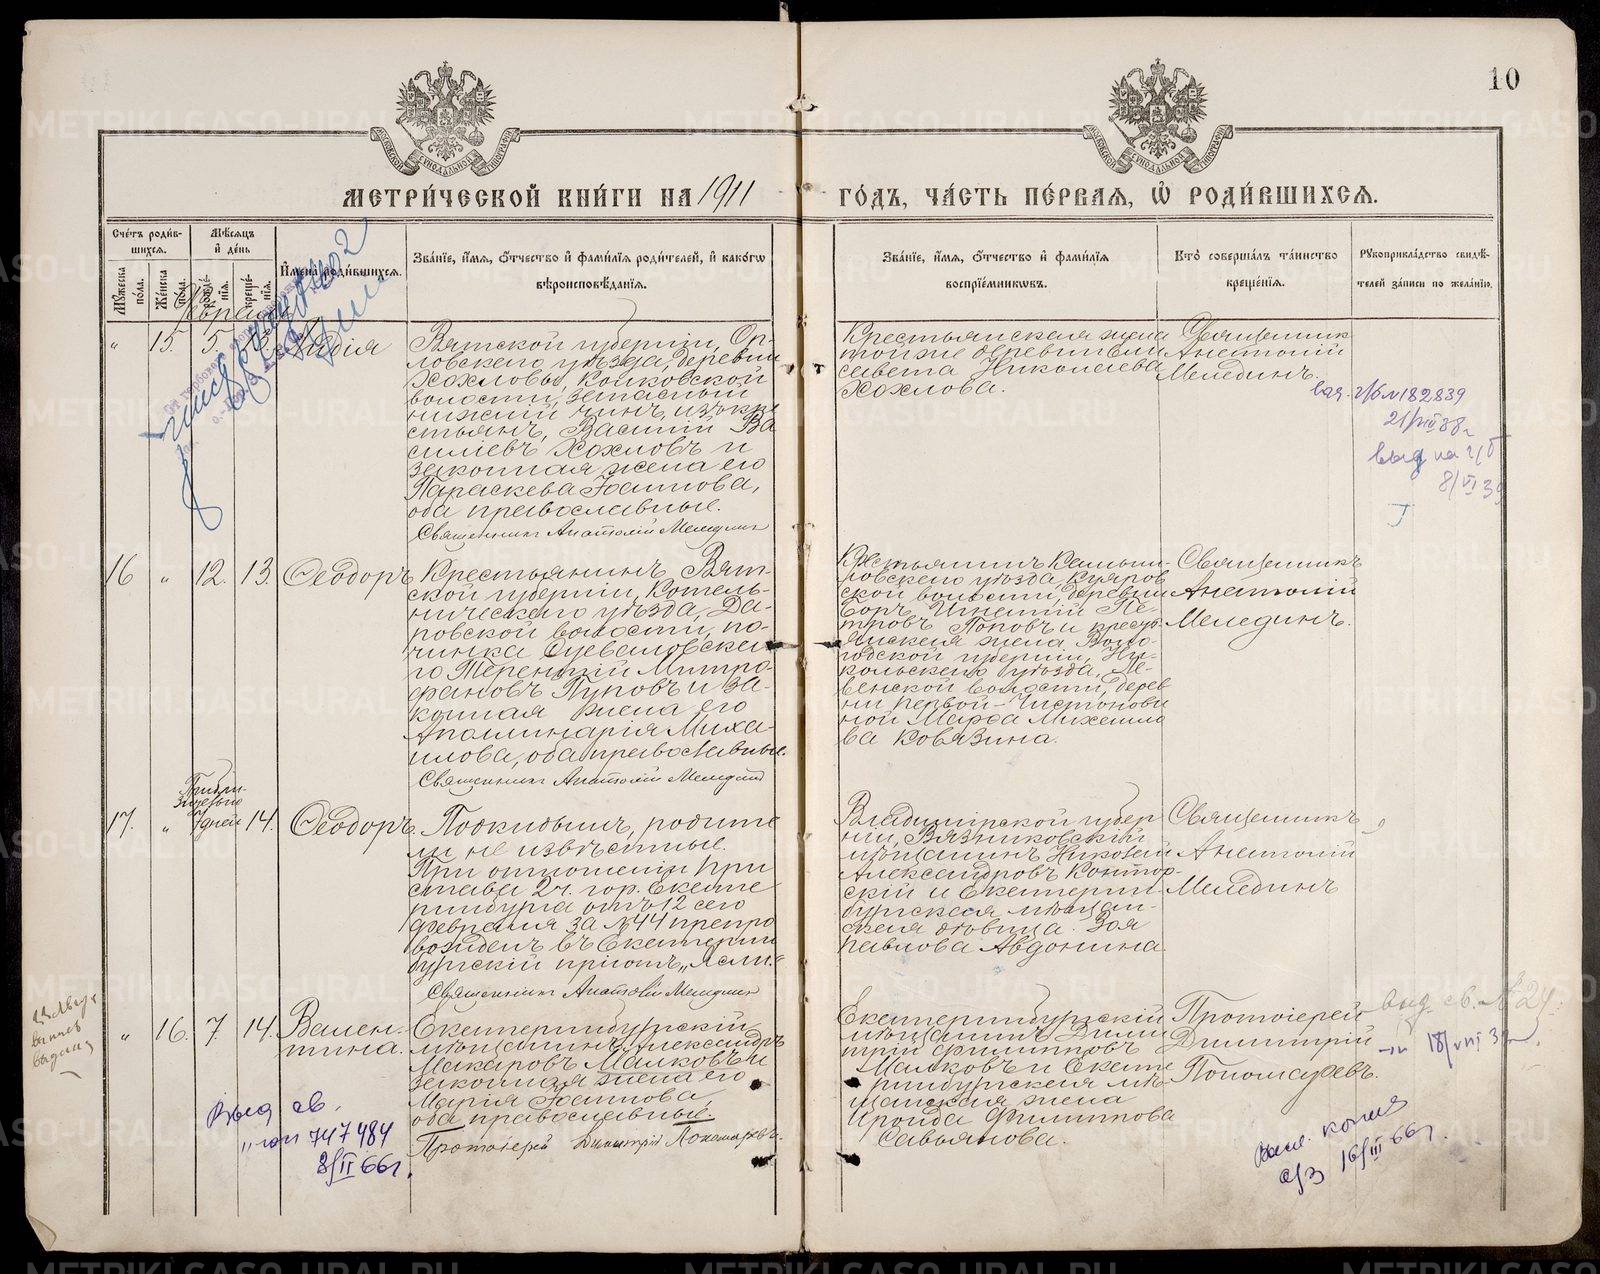 10
МЕТРИ́ЧЕСКОЙ КНИ́ГИ НА 1911 ГО́ДЪ, ЧА́СТЬ ПЕ́РВАЯ, Ѡ РОДИ́ВШИХСЯ.
Сче́тъ роди́в-
шихся.
Мꙋ́жеска по́ла.
Же́нска по́ла.
Мѣ́сяцъ
и де́нь
рожде́-
нія.
креще́-
нія.
И́мена роди́вшихся.
Зва́ніе, и́мя, ѻ́тчество и фами́лія роди́телей, и како́гѡ
вѣроисповѣ́данія.
Зва́ніе, и́мя, ѻ́тчество и фами́лія
воспріе́мниковъ.
Кто̀ соверша́лъ та́инство
креще́нія.
Рꙋкоприкла́дство свидѣ́-
телей за́писи по жела́нію.
Февраль
" 15. 5. 13. Лидія
Вятской губерніи, Ор-
ловскаго уѣзда, деревни
Хохловы, Койковской
волости, запасный
нижній чинъ изъ кре
стьянъ, Василій Ва
сильевъ Хохловъ и
законная жена его
Параскева Іоаннова,
оба православные.
Священникъ Анатолій Меледин
Крестьянская жена
той же деревни Ели
савета Николаева
Хохлова.
Священник
Анатолій
Мелединъ.
г/б №182839
21/VIII 38 г
выд на г/б
8/VI 39
16 " 12. 13. Ѳеодоръ
Крестьянинъ Вят-
ской губерніи, Котель-
ническаго уѣзда, Да-
ровской волости, по-
чинка
го Терентій Митро-
фановъ Пуповъ и за-
конная жена его
Аполлинарія Миха-
илова, оба православные.
Священникъ Анатолій Меледин
Крестьянинъ Камыш-
ловскаго уѣзда, Куяров
ской волости, деревни
Боръ, Игнатій Пе-
тровъ Поповъ и кресть
янская жена Воло-
годской губерніи, Ни-
кольскаго уѣзда, Ле-
венской волости, дерев
ни первой-
ной Марѳа Михаило
ва Ковязина.
Священникъ
Анатолій
Мелединъ.
Прибли-
зительно
17. " 7 дней 14. Ѳеодоръ
Подкидышъ, родите
ли не извѣстные.
При отношеніи при
става 2 ч. гор. Екате
ринбурга отъ 12 сего
февраля за №44 препро
вожденъ въ Екатерин
бургскій пріютъ "Ясли."
Священникъ Анатолій Меледин
Владимірской губер
ніи, Вязниковскій
мѣщанинъ Николай
Александровъ Контор-
скій и Екатерин-
бургская мѣщан-
ская дѣвица Зоя
Павлова Авдонина.
Священникъ
Анатолій
Мелединъ
" 16. 7. 14. Вален-
тина.
Екатеринбургскій
мѣщанинъ Александръ
Макаровъ Малковъ и
законная жена его
Марія Іоаннова,
оба православные.
Протоіерей Димитрій Пономаревъ.
Екатеринбургскій
мѣщанинъ Дими
трій Филипповъ
Малковъ и Екате
ринбургская мѣ-
щанская жена
Ираида Филиппова
Савьянова.
Протоіерей
Димитрій
Пономаревъ.
выд. св. № 24
18/VIII 39 г.
Выд св.
747484
8/II 66 г.
Выд. копия
с/з 16/III 66 г.